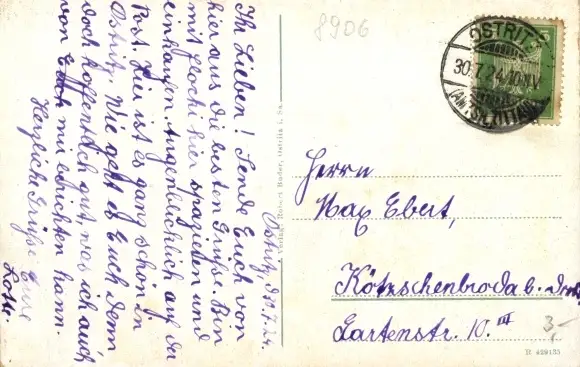 8906
OSTRITZ
30.7.24
(AMTSH. ZITTAU)
Ostritz, d. 30.7.24.
Ihr Lieben! Sende Euch von
hier aus die besten Grüße. Bin
mit hier spazieren und
einkaufen. Augenblicklich auf der
Post. Hier ist es ganz schön in
Ostritz. Wie geht es Euch denn
doch hoffentlich gut, was ich auch
von Euch mit berichten kann.
Herzliche Grüße Eure
Lotte.
Verlag: Robert Bader, Ostritz i. Sa.
Herrn
Max Ebert,
Kötzschenbroda b. Dresd.
Gartenstr. 10. III
3,-
R 429155